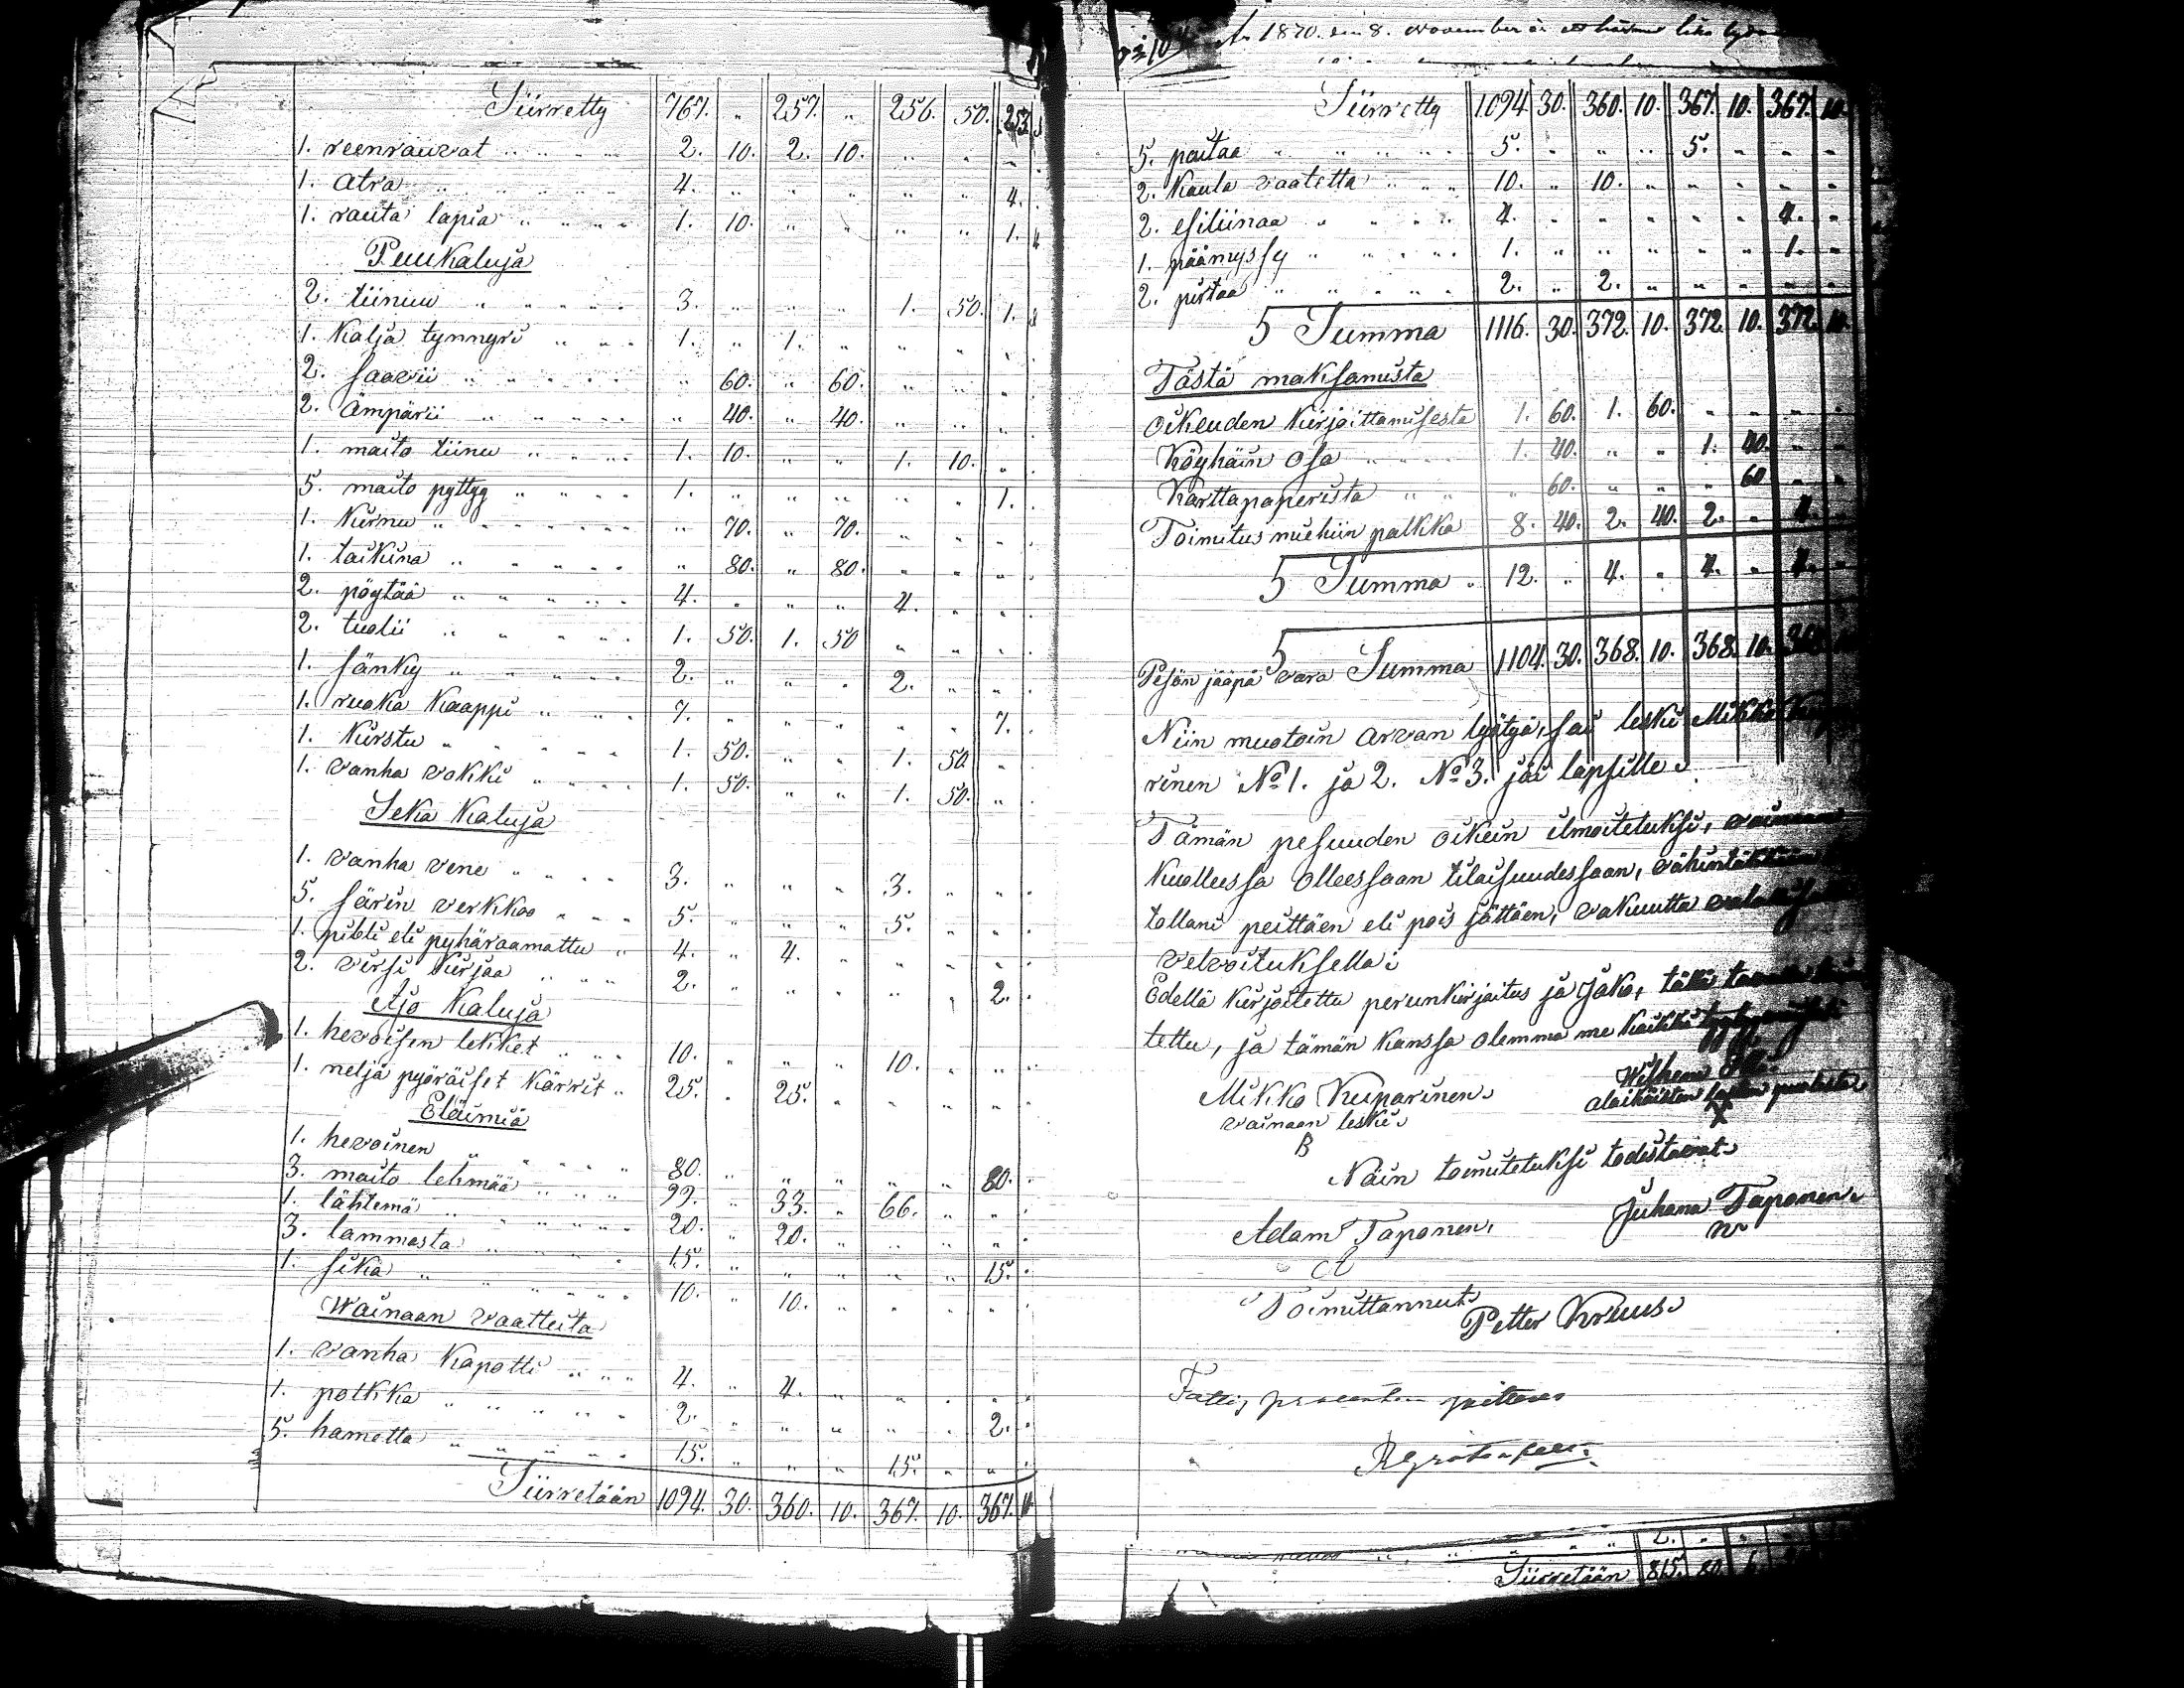 Siirretty 767. " 257. " 256. 50. 253.
1. reenrauvat " " 2. 10. 2. 10. " " "
1. Atra " " 4. " " " " " 4.
1. rauta lapia " " 1. 10. " " " " 1.
Puukaluja
2. tiinuu " " 3. " " " 1. 50. 1.
1. Kalja tynnyri " " 1. " 1. " " " "
2. saavii " " " 60. " 60. " " "
2. Ämpärii " " " 40. " 40. " " "
1. maito tiinu " " 1. 10. " " 1. 10. "
5. maito pyttyy " " 1. " " " " " 1.
1. Kirnu " " " 70. " 70. " " "
1. taikina " " " 80. " 80. " " "
2. pöytää " " 4. " " " 4. " "
2. tuolii " " 1. 50. 1. 50 " " "
1. sänky " " 2. " " " 2. " "
1. ruoka Kaappi " " 7. " " " " " 7.
1. Kirstu " " 1. 50. " " 1. 50. "
1. vanha vakki " " 1. 50. " " 1. 50. "
Seka Kaluja
1. vanha vene " " 3. " " " 3. " "
5. särin verkkoo " " 5. " " " 5. " "
1. pibli eli pyhäraamattu " 4. " 4. " " " "
2. virsi Kirjaa " " 2. " " " " " 2.
Ajo Kaluja
1. hevoisen lekket " " 10. " " " 10. " "
1. neljä pyöräiset Kärrit " 25. " 25. " " " "
Eläimiä
1. hevoinen " " 80. " " " " " 80.
3. maito lehmää " " 99. " 33. " 66. " "
1. lähtemä " " 20. " 20. " " " "
3. lammasta " " 15. " " " " " 15.
1. sika " " 10. " 10. " " " "
Wainaan vaatteita
1. vanha Kapotti " " 4. " 4. " " " "
1. polkka " " 2. " " " " " 2.
5. hametta " " 15. " " " 15. " "
Siirretään 1094. 30. 360. 10. 367. 10. 367.
1870. den 8. November
Siirretty 1094. 30. 360. 10. 367. 10. 367. 10.
5. paitaa " " 5. " " " 5. " " "
2. Kaula vaatetta " " 10. " 10. " " " " "
2. esiliinaa " " 4. " " " " " 4. "
1. päämyssy " " 1. " " " " " 1. "
2. pirtaa " " 2. " 2. " " " " "
Summa 1116. 30. 372. 10. 372. 10. 372. 10.
Tästä maksamista
Oikeuden Kirjoittamisesta 1. 60. 1. 60. " " " "
Köyhäin osa " " 1. 40. " " 1. 40. " "
Karttapaperista " " " 60. " " " 60 " "
Toimitus miehiin palkka 8. 40. 2. 40. 2. " 4. "
Summa " 12. " 4. " 4. " 4. "
Pesän jääpä vara Summa 1104. 30. 368. 10. 368. 10. 368.
Niin muotoin arvan lyötyä, sai leski Mikko
rinen No 1. ja 2. No 3. jäi lapsille.
Tämän pesuuden oikein ilmoitetuksi,
Kuollessa olleessaan tilaisuudessaan,
tollani peittäen eli pois jättäen, vakuutta
velvoituksella:
Edellä Kirjoitettu perunkirjoitus ja Jako,
tettu, ja tämän kanssa olemma me kaikki
Mikko Kuparinen.
vainaan leski.
B
Wilhem
alaikäisten lapsien puolesta.
X
Näin toimitetuksi todistavat.
Adam Taponen,
A
Juhana Taponen.
Toimittannut.
Petter Kruus.
Fattig procenten
Siirretään 815. 80.